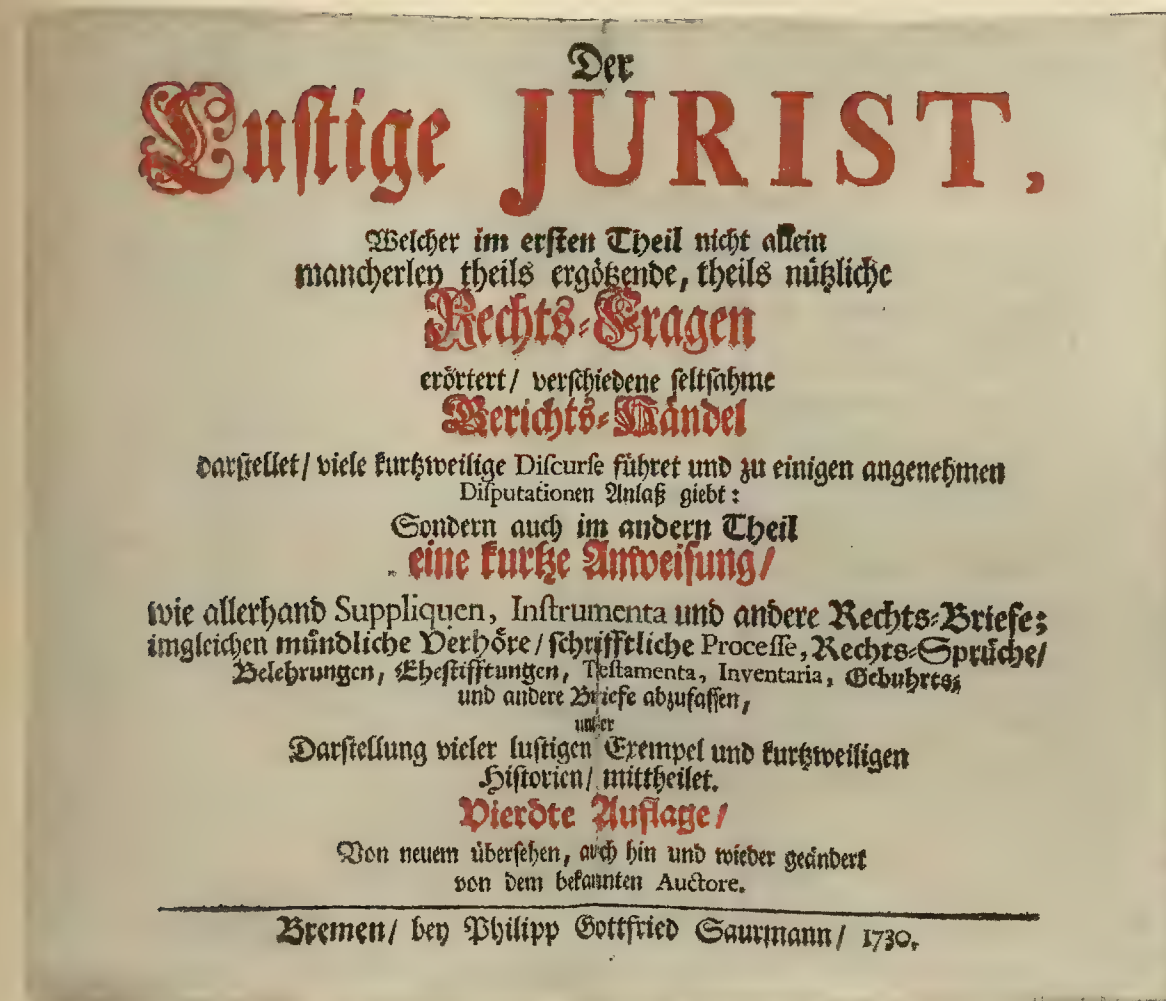 Der
Lustige JURIST,
Welcher im ersten Theil nicht allein
mancherley theils ergötzende, theils nützliche
Rechts-Fragen
erörtert/ verschiedene seltsahme
Gerichts-Händel
darstellet/ viele kurtzweilige Discurse führet und zu einigen angenehmen
Disputationen Anlaß giebt:
Sondern auch im andern Theil
eine kurtze Anweisung/
wie allerhand Suppliquen, Instrumenta und andere Rechts-Briefe;
imgleichen mündliche Verhöre/ schrifftliche Processe, Rechts-Sprüche/
Belehrungen, Ehestifftungen, Testamenta, Inventaria, Gebuhrts-
und andere Briefe abzufassen,
unter
Darstellung vieler lustigen Exempel und kurtzweiligen
Historien/ mittheilet.
Vierdte Auflage/
Von neuem übersehen, auch hin und wieder geändert
von dem bekannten Auctore.
Bremen/ bey Philipp Gottfried Saurmann/ 1730.